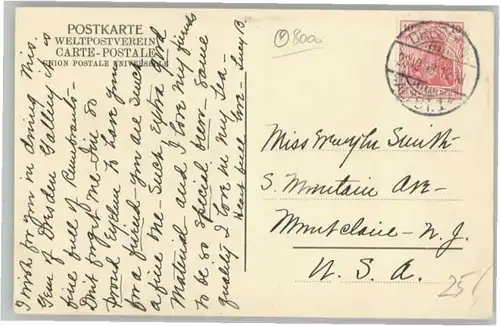 POSTKARTE
WELTPOSTVEREIN
CARTE-POSTALE
UNION POSTALE UNIVERSELLE
800
I wish for you in dining this
Gem of Dresden Gallery it is
fine full of Rembrandts-
Don't forget me I'm so
proud to have you
for a friend-you are such
a fine me-Such extra
Material and I love my friends
to be so special here-Same
quality I love in my tea-
Heart full love-Lucy B
Miss Smith-
S. Mountain Ave-
Montclaire-N.J.
U.S.A.
25/